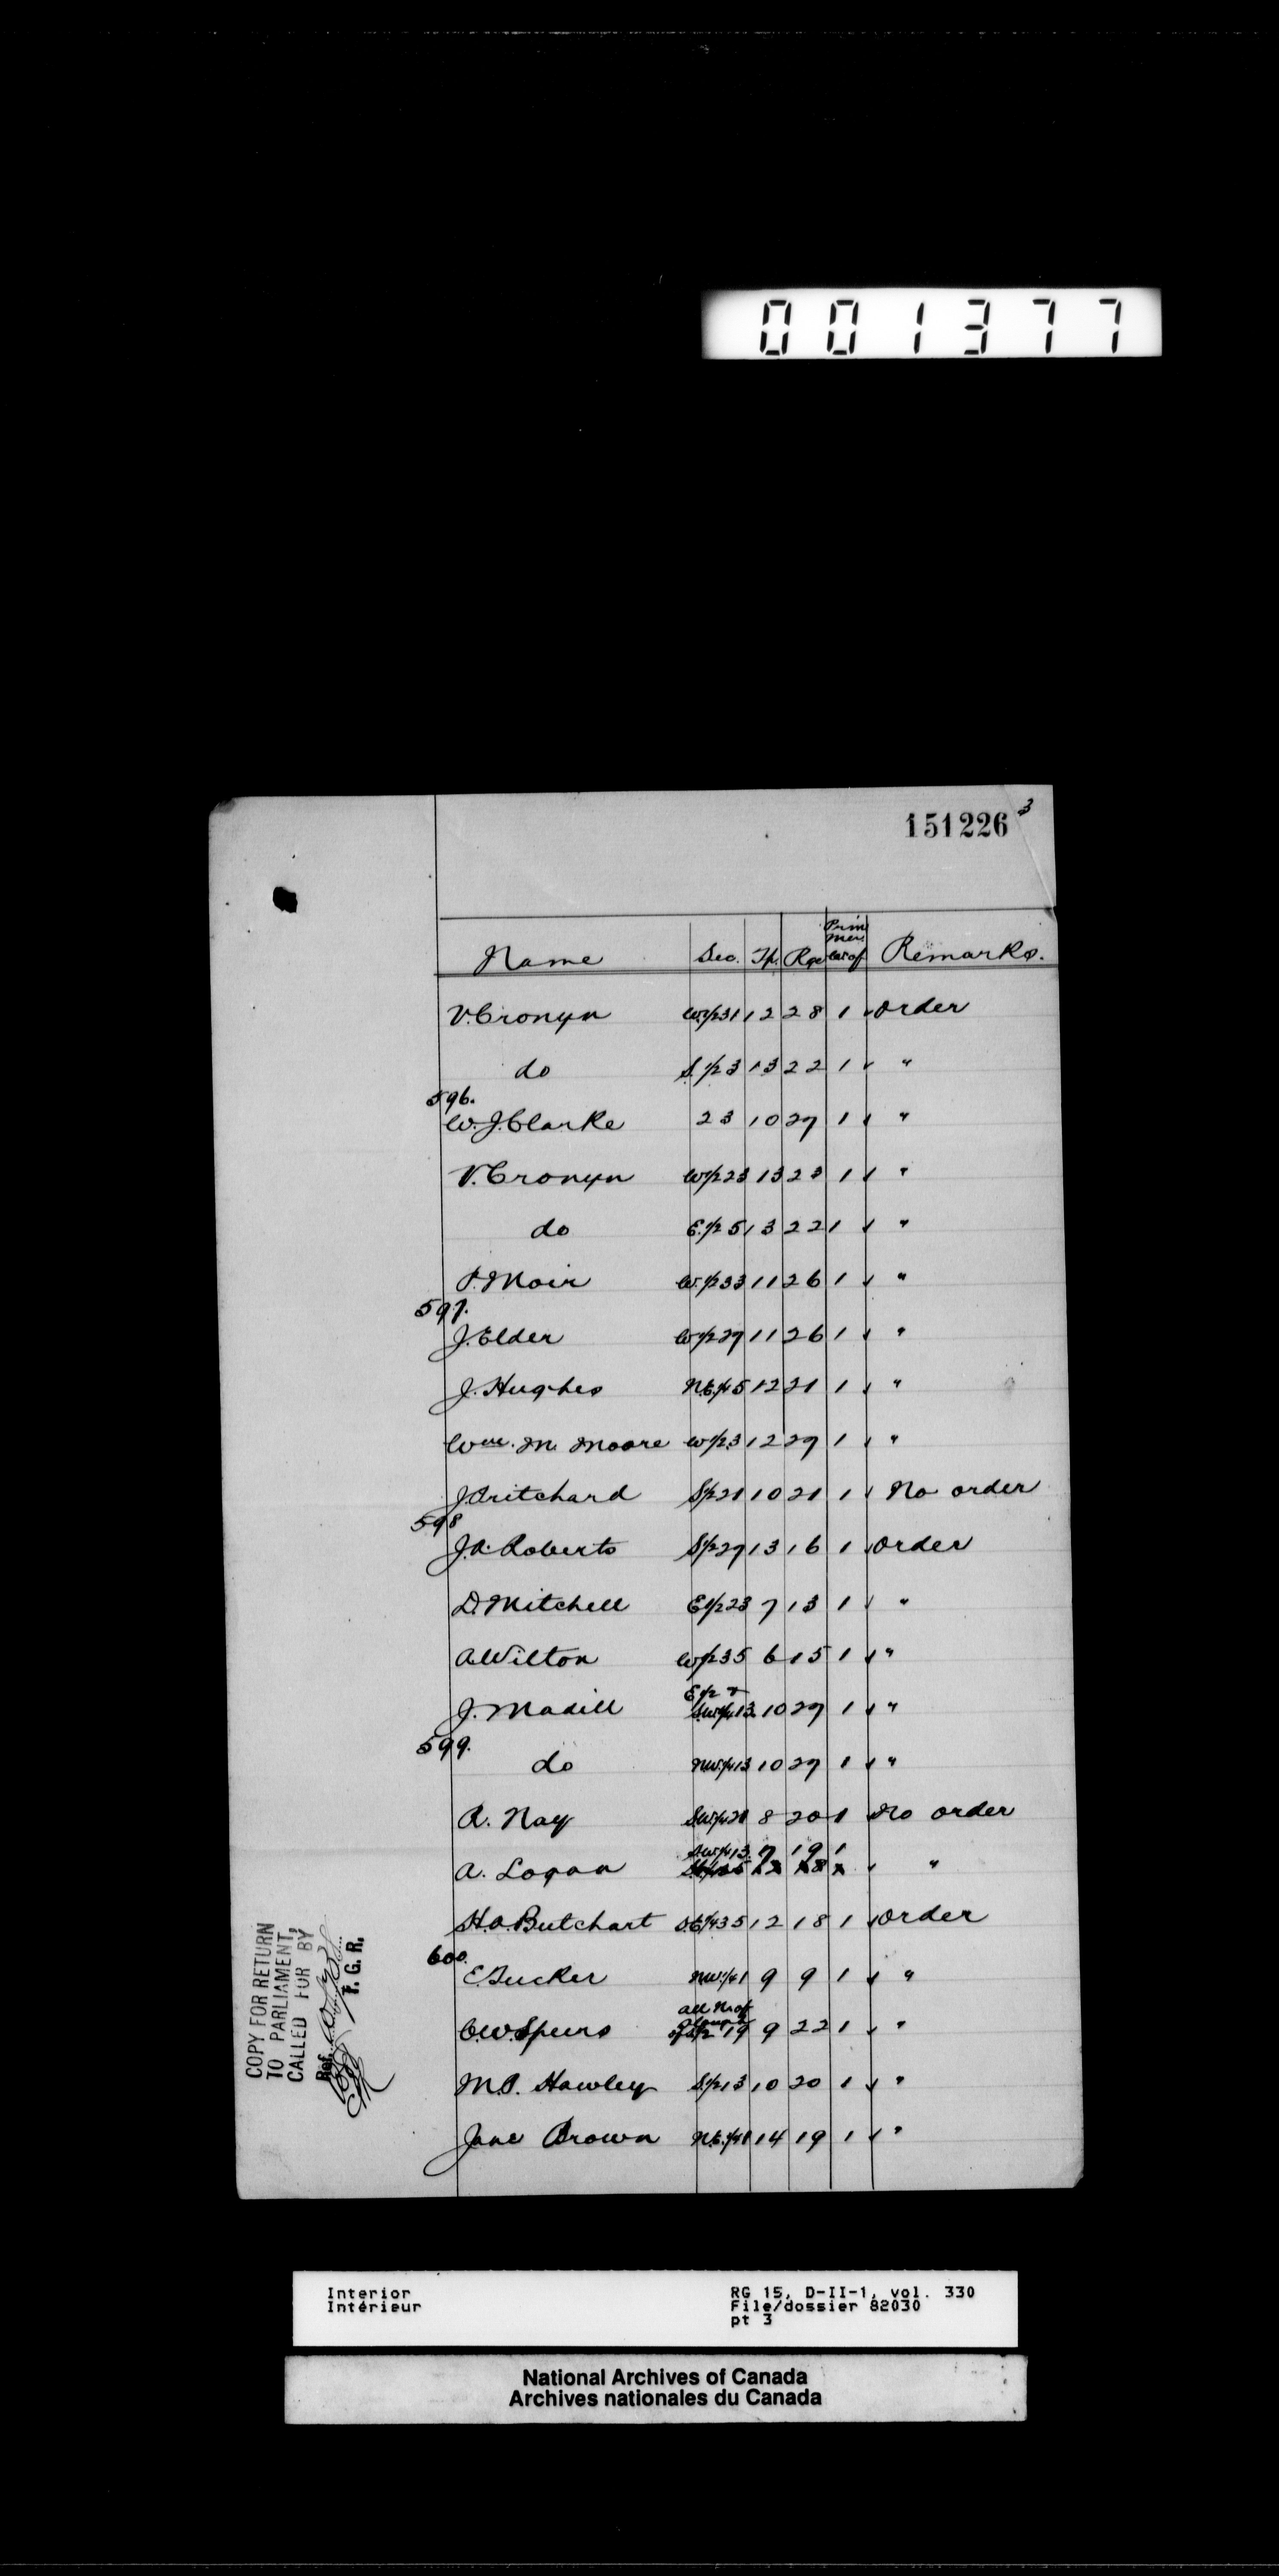 001377
151226 3
Name Sec. Tp. Rge Prin Mer. East of Remarks.
V. Cronyn W.1/2 31 12 28 1 Order
do S.1/2 3 13 22 1 "
596.
W. J. Clarke 23 10 27 1 "
V. Cronyn W1/2 23 13 23 1 "
do E.1/2 5 13 22 1 "
P. Moir W.1/2 33 11 26 1 "
597.
J. Elder W1/2 27 11 26 1 "
J. Hughes N.E.1/4 5 12 21 1 "
Wm. M. Moore W1/2 3 12 29 1 "
J. Pritchard S1/2 21 10 21 1 No order
598
J. A. Roberts S1/2 29 13 16 1 Order
D. Mitchell E1/2 23 7 13 1 "
A. Wilton W1/2 35 6 15 1 "
J. Madill E1/2 & S.W1/4 13 10 29 1 "
599.
do N.W.1/4 13 10 29 1 "
R. Nay S.W.1/4 21 8 20 1 No order
A. Logan S.W.1/4 13 7 19 1 "
H. O. Butchart S.E1/4 35 12 18 1 Order
600.
E. Tucker N.W.1/4 1 9 9 1 "
C. W. Speers all N. of of S1/2 19 9 22 1 "
M. P. Hawley S.1/2 13 10 20 1 "
Jane Brown N.E.1/4 14 19 1 "
COPY FOR RETURN
TO PARLIAMENT,
CALLED FOR BY
Ref.
T. G. R.
Interior
Intérieur
RG 15, D-II-1, vol. 330
File/dossier 82030
pt 3
National Archives of Canada
Archives nationales du Canada